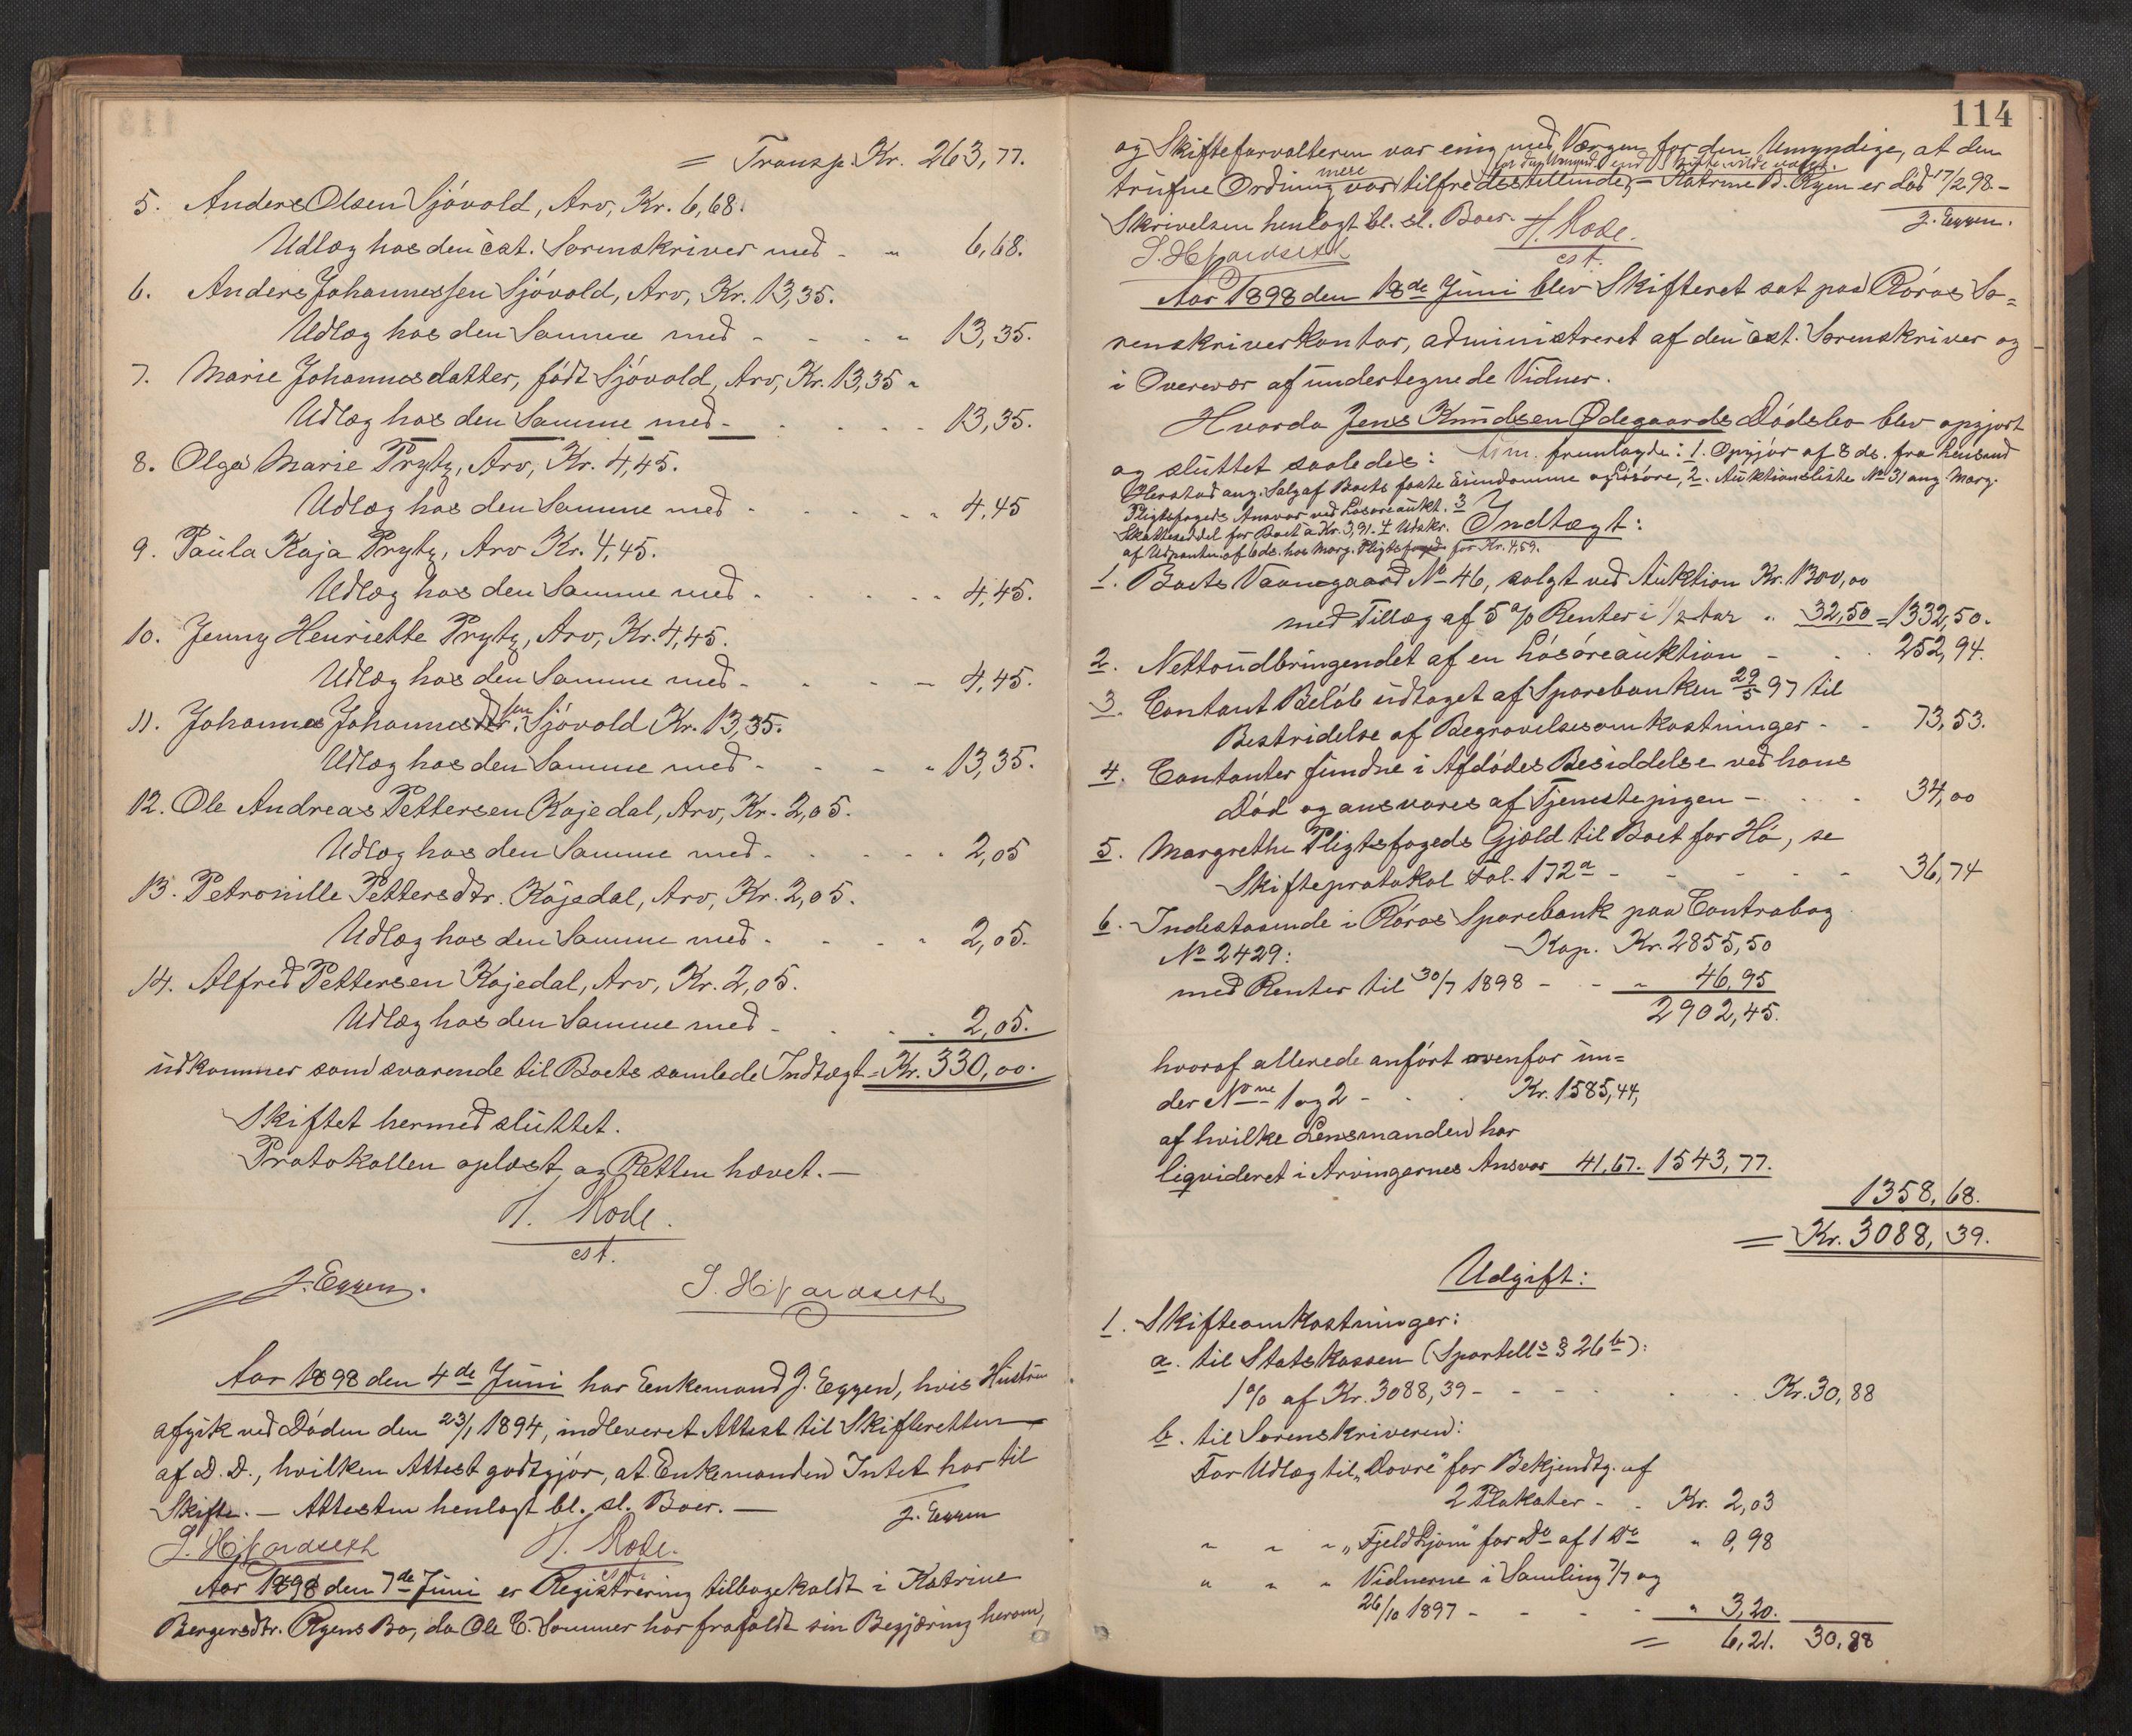 = Transp. Kr. 263,77.
5. Anders Olsen Sjövold, Arv, Kr. 6,68.
Udlæg hos den cst. Sorenskriver med - " 6,68.
6. Anders Johannessen Sjövold, Arv, Kr. 13,35.
Udlæg hos den Samme med - - - " 13,35.
7. Marie Johannesdatter, født Sjövold, Arv, Kr. 13,35 "
Udlæg hos den Samme med - - - - 13,35.
8. Olga Marie Prytz, Arv, Kr. 4,45.
Udlæg hos den Samme med - - - - " 4,45
9. Paula Kaja Prytz, Arv Kr. 4,45.
Udlæg hos den Samme med - - - - " 4,45.
10. Jenny Henriette Prytz, Arv, Kr. 4,45.
Udlæg hos den Samme med - - - - 4,45.
11. Johannes Johannessen Sjövold Kr. 13,35.
Udlæg hos den Samme med - - - " 13,35.
12. Ole Andreas Pettersen Kojedal, Arv, Kr. 2,05.
Udlæg hos den Samme med - - - - 2,05
13. Petronille Pettersdtr. Kojedal, Arv, Kr. 2,05.
Udlæg hos den Samme med - - - " 2,05.
14. Alfred Pettersen Kojedal, Arv, Kr. 2,05.
Udlæg hos den Samme med - - - " 2,05.
udkommer som svarende til Boets samlede Indtægt = Kr. 330,00.
Skiftet hermed sluttet.
Protokollen oplæst og Retten hævet. —
H. Rode.
cst.
J. Eggen.
Aar 1898 den 4de Juni har Enkemand J. Eggen, hvis Hustru
afgik ved Döden den 23/1 1894, indleveret Attest til Skifteretten
af D. D., hvilken Attest godtgjör, at Enkemanden Intet har til
Skifte. — Attesten henlagt bl. sl. Boer. —
J. Eggen
H. Rode.
Aar 1898 den 7de Juni er Registrering tilbagekaldt i Katrine
Bergersdtr. Ryens Bo, da Ole C. Sommer har frafaldt sin Begjæring herom,
114
og Skifteforvalteren var enig med Værgen for den Umyndige, at den
trufne Ordning var mere tilfredsstillende, - Katrine B. Ryen er död 17/2 98. -
Skrivelsen henlagt bl. sl. Boer. H. Rode.
cst.
J. Eggen.
Aar 1898 den 18de Juni blev Skifteret sat paa Röros So=
renskriverkontor, administreret af den cst. Sorenskriver og
i Overvær af undertegnede Vidner.
Hvorda Jens Knudsen Ødegaards Dödsbo blev opgjort
og sluttet saaledes: fremlagde: 1. Opgjör af 8 ds. fra Lensmd
ang. Salg af Boets faste Eiendomme og Lösöre, 2. Auktionsliste No 31 ang. Marg.
Pligtsfogeds Ansvar ved Lösöreaukt. 3
Skatteseddel for Boet à Kr. 3,91. 4 Udskr.
af Udpantn. af 6 ds. hos Marg. Pligtsfoged for Kr. 4,59.
Indtægt:
1. Boets Vaanegaard No 46, solgt ved Auktion Kr. 1300,00
med Tillæg af 5 % Renter i 1/2 Aar " 32,50 = 1332,50.
2. Nettoudbringendet af en Lösöreauktion - - - 252,94.
3. Contant Belöb udtaget af Sparebanken 29/5 97 til
Bestridelse af Begravelsesomkostninger - - 73,53.
4. Contanter fundne i Afdödes Besiddelse ved hans
Död og ansvares af Tjenestepigen - - - 34,00
5. Margrethe Pligtsfogeds Gjæld til Boet for Hö, se
Skifteprotokol Fol. 172a - - - - - 36,74
6. Indestaaende i Röros Sparebank paa Contrabog
No 2429: Kap. Kr. 2855,50
med Renter til 30/7 1898 - - " 46,95
2902,45.
hvoraf allerede anfört ovenfor un=
der Nrne 1 og 2 - - - Kr. 1585,44,
af hvilke Lensmanden har
liqvideret i Arvingernes Ansvar 41,67. 1543,77.
1358,68.
= Kr. 3088,39.
Udgift:
1. Skifteomkostninger:
a. til Statskassen (Sportells § 26b):
1% af Kr. 3088,39 - - - - - - Kr. 30,88
b. til Sorenskriveren:
For Udlæg til "Dovre" for Bekjendtg. af
2 Plakater - - Kr. 2,03
" " " "Fjeldljom" for Do af 1 Do " 0,98
" " " Vidnerne i Samling 7/7 og
26/10 1897 - - - - " 3,20.
= 6,21. 30,88